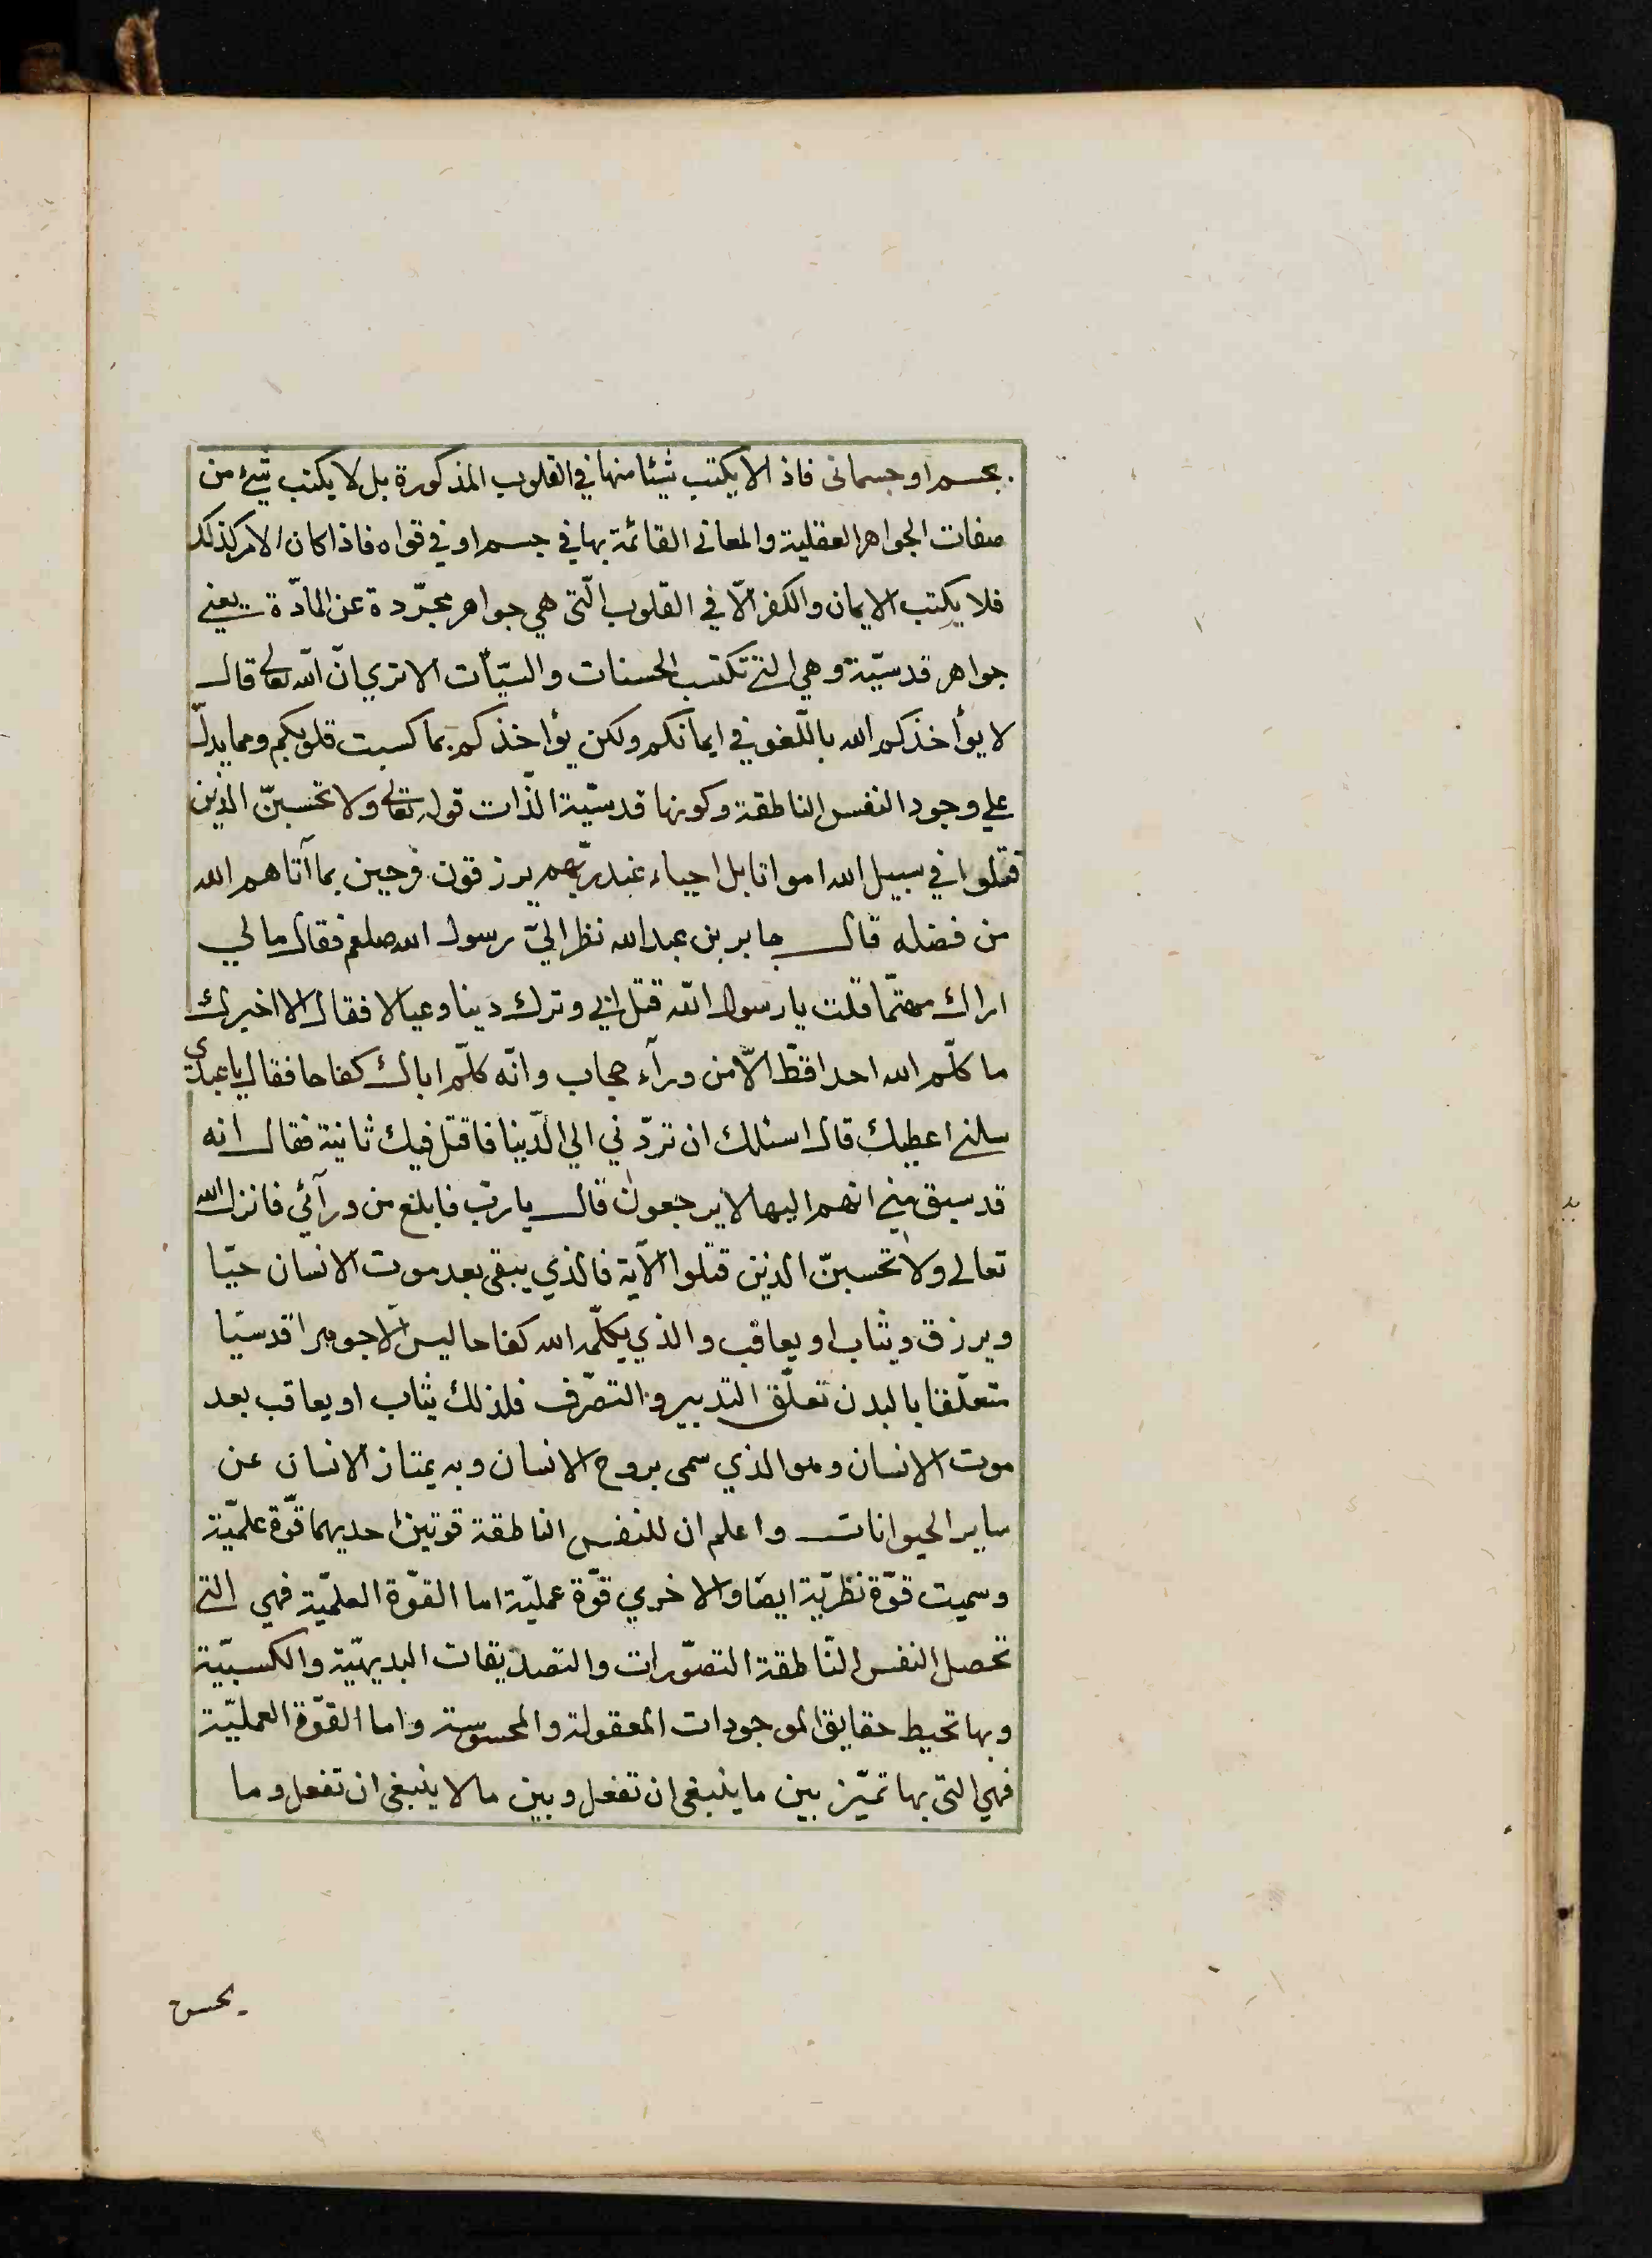 بجسم او جسمانى فاذ الا يكتب شيئا منها في القلوب المذكورة بل لا يكتب شيء من
صفات الجواهر العقلية والمعانى القائمة بها في جسم او في قواه فاذا كان الامر كذلك
فلا يكتب الايمان والكفر الّا في القلوب الّتى هي جواهر مجرّدة عن المادّة يعني
جواهر قدسيّة وهي التي تكتب الحسنات والسيّآت الا تري انّ الله تعالى قال
لا يؤاخذكم الله باللّغو في ايمانكم ولكن يؤاخذكم بما كسبت قلوبكم ومما يدلّ
علي وجود النفس الناطقة وكونها قدسيّة الذّات قوله تعالى ولا تحسبنّ الذين
قتلوا في سبيل الله امواتا بل احياء عند ربّهم يرزقون فرحين بما آتاهم الله
من فضله قال جابر بن عبدالله نظر اليّ رسول الله صلعم فقال ما لي
اراك مهتمّا قلت يا رسول الله قتل ابي وترك دينا وعيالا فقال الا اخبرك
ما كلّم الله احدا قطّ الّا من ورآء حجاب وانّه كلّم اباك كفاحا فقال يا عبدي
سلني اعطيك قال اسئلك ان تردّني الي الدّنيا فاقتل فيك ثانية فقال انه
قد سبق مني انهم اليها لا يرجعون قال يا ربّ فابلغ من ورآئي فانزل الله
تعالى ولا تحسبنّ الذين قتلوا الآية فالذي يبقي بعد موت الانسان حيّا
ويرزق ويثاب او يعاقب والذي يكلّمه الله كفاحا ليس الّا جوهرا قدسيّا
متعلّقا بالبدن تعلّق التدبير والتصّرف فلذلك يثاب او يعاقب بعد
موت الانسان وهو الذي سمى بروح الانسان وبه يمتاز الانسان عن
ساير الحيوانات واعلم ان للنفس الناطقة قوتين احديهما قوّة علميّة
وسميت قوّة نظريّة ايضا والاخري قوّة عمليّة اما القوّة العلميّة فهي التي
تحصل النفس النّاطقة التصوّرات والتصديقات البديهيّة والكسبيّة
وبها تحيط حقايق الموجودات المعقولة والمحسوسة واما القوّة العمليّة
فهي التى بها تميّز بين ما ينبغى ان تفعل وبين ما لا ينبغى ان تفعل وما
يحسن